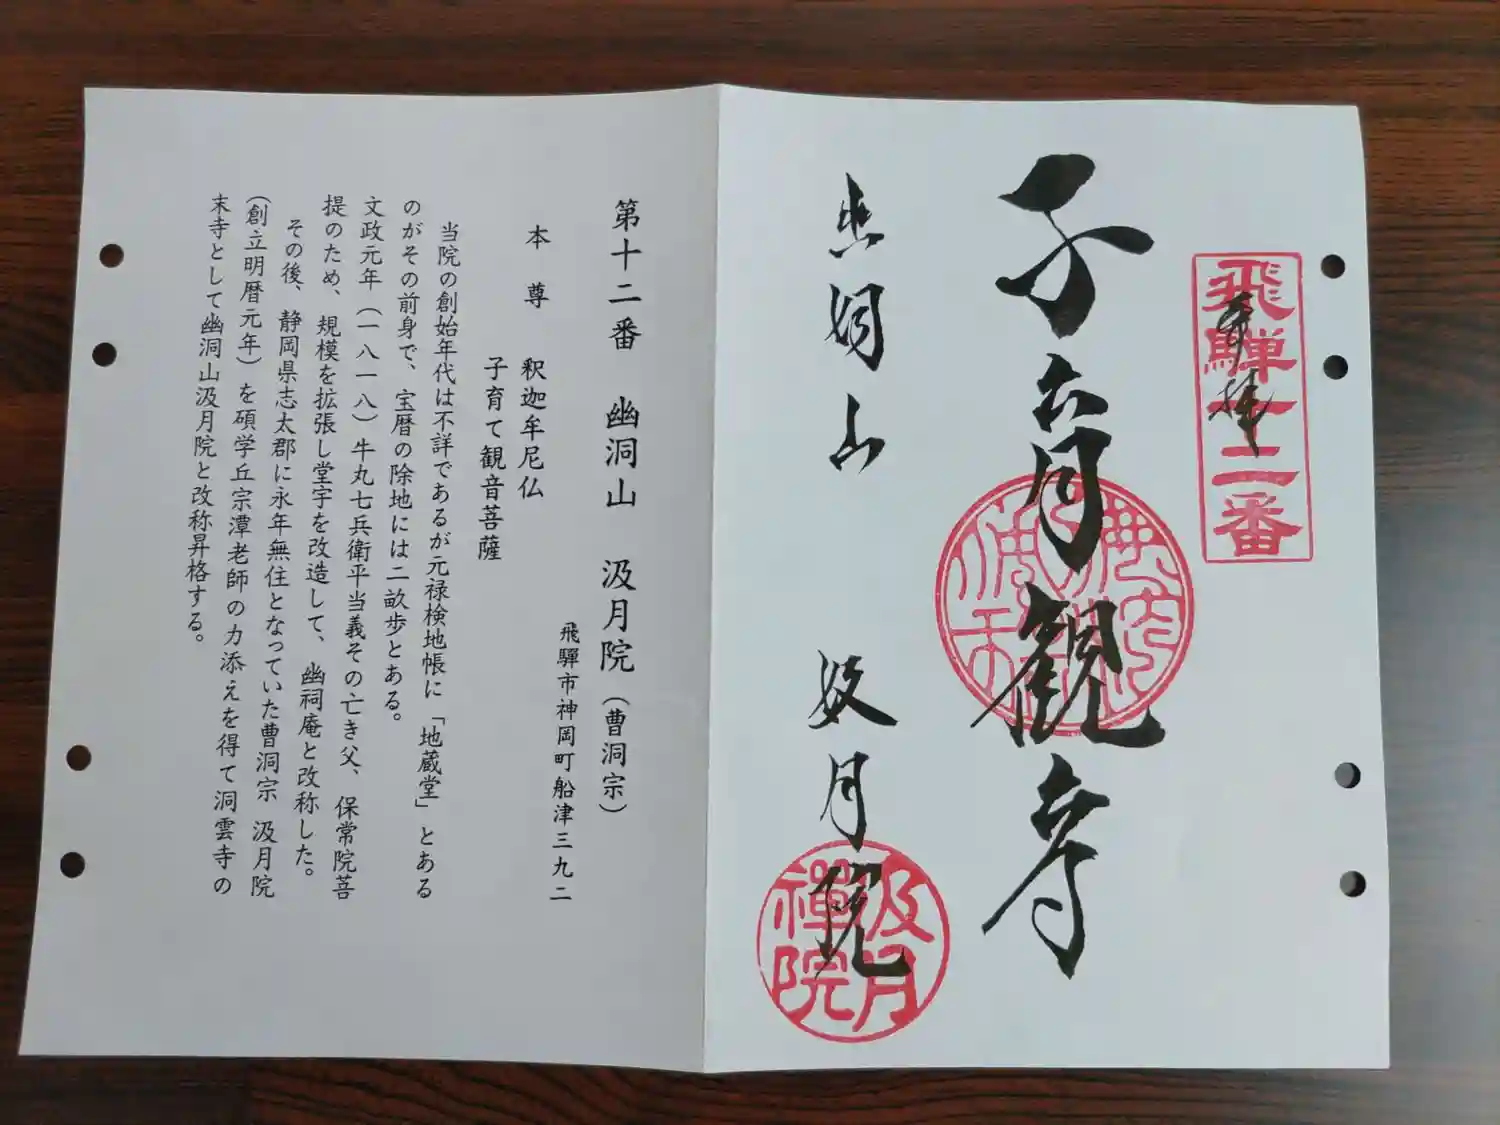 飛騨十二番
奉拝
子育観音
幽洞山　汲月院
汲月禅院
第十二番　幽洞山　汲月院（曹洞宗）
飛騨市神岡町船津三九二
本　尊　釈迦牟尼仏
子育て観音菩薩
当院の創始年代は不詳であるが元禄検地帳に「地蔵堂」とある
のがその前身で、宝暦の除地には二畝歩とある。
文政元年（一八一八）牛丸七兵衛平当義その亡き父、保常院菩
提のため、規模を拡張し堂宇を改造して、幽祠庵と改称した。
その後、静岡県志太郡に永年無住となっていた曹洞宗 汲月院
（創立明暦元年）を碩学丘宗潭老師の力添えを得て洞雲寺の
末寺として幽洞山汲月院と改称昇格する。